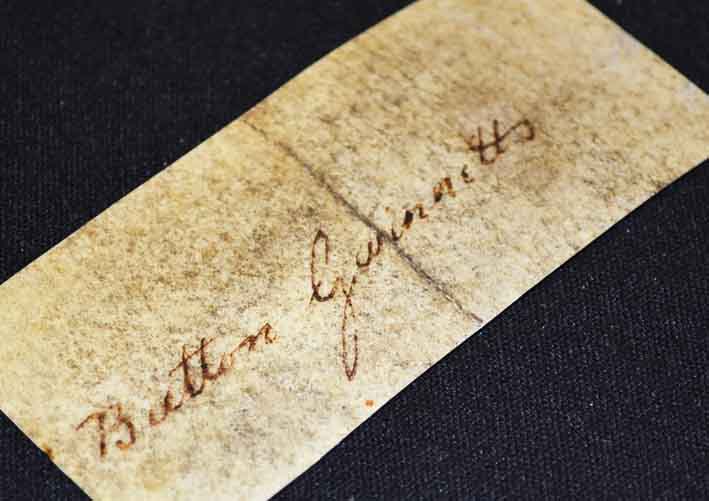 Button Gwinnetts